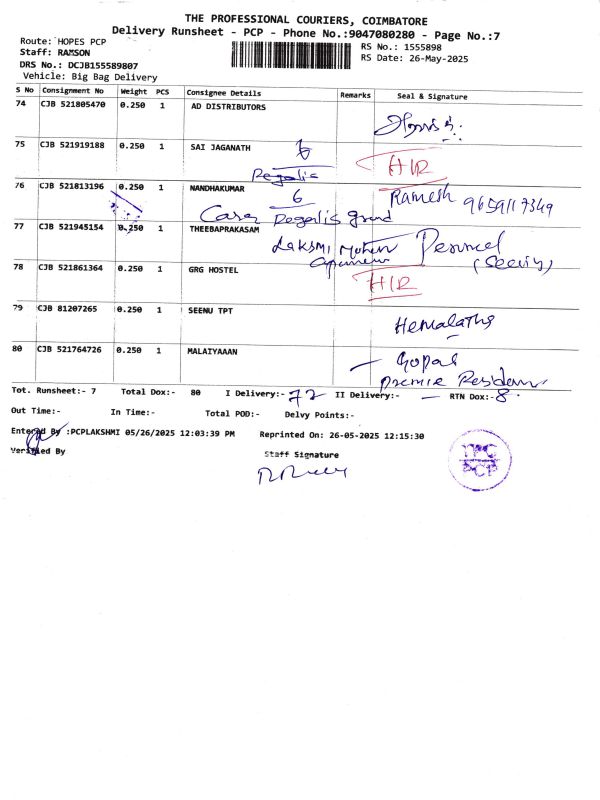 THE PROFESSIONAL COURIERS, COIMBATORE
Delivery Runsheet - PCP - Phone No.:9047080280 - Page No.:7
Route: HOPES PCP
RS No.: 1555898
Staff: RAMSON
RS Date: 26-May-2025
DRS No.: DCJB155589807
Vehicle: Big Bag Delivery
S No Consignment No Weight PCS Consignee Details Remarks Seal & Signature
74 CJB 521805470 0.250 1 AD DISTRIBUTORS
75 CJB 521919188 0.250 1 SAI JAGANATH
Regalis H/R
76 CJB 521813196 0.250 1 NANDHAKUMAR
6 Ramesh 9659117349
Casa Regalis grand
77 CJB 521945154 0.250 1 THEEBAPRAKASAM
Laksmi
78 CJB 521861364 0.250 1 GRG HOSTEL
H/R
79 CJB 81207265 0.250 1 SEENU TPT
Hemalatha
80 CJB 521764726 0.250 1 MALAIYAAAN
Gopal
Tot. Runsheet:- 7 Total Dox:- 80 I Delivery:- 72 II Delivery:- — RTN Dox:- 8
Out Time:- In Time:- Total POD:- Delvy Points:-
Entered By :PCPLAKSHMI 05/26/2025 12:03:39 PM Reprinted On: 26-05-2025 12:15:30
Verified By Staff Signature
TPC
PCP